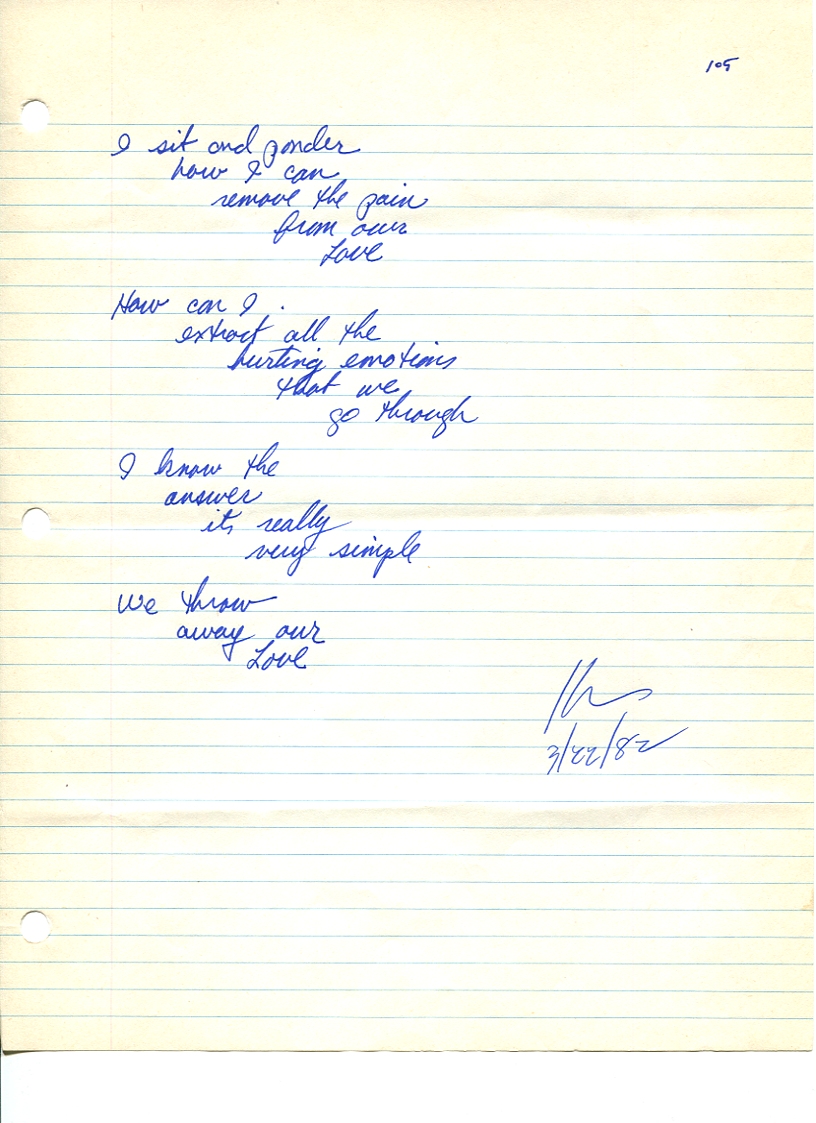 105
I sit and ponder
how I can
remove the pain
from our
Love
How can I
extract all the
hurting emotions
that we
go through
I know the
answer
its really
very simple
We throw
away our
Love
3/22/82